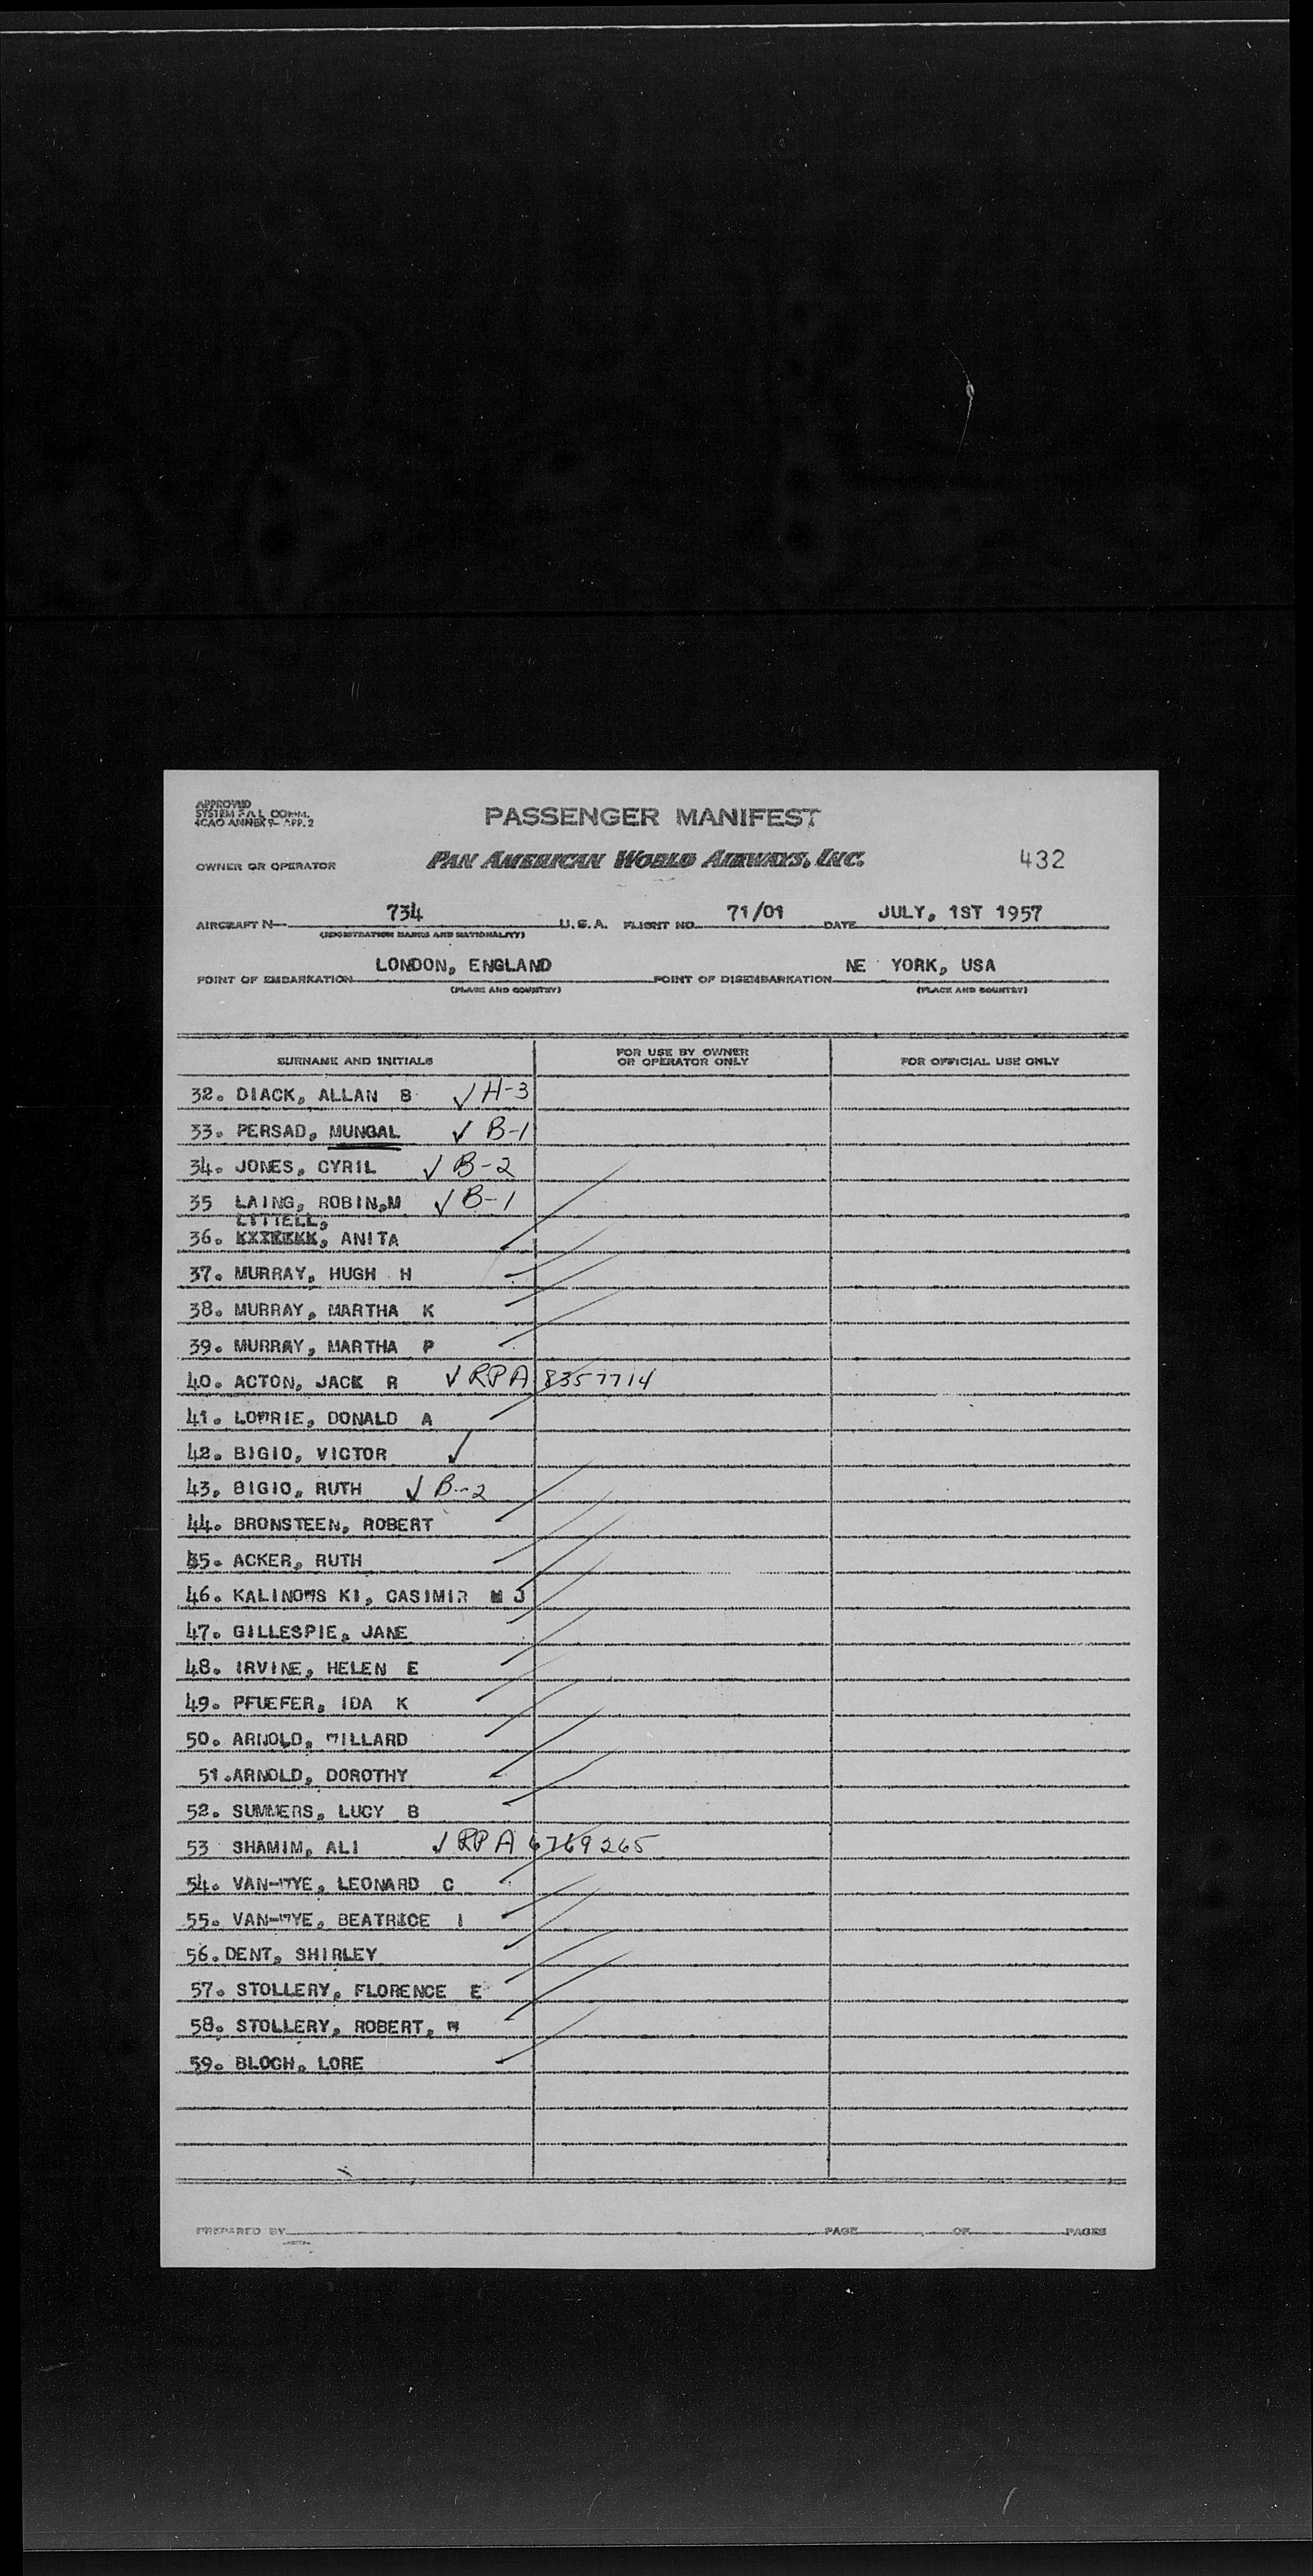 APPROVED
SYSTEM FAL COMM.
ICAO ANNEX 9- APP. 2
PASSENGER MANIFEST
OWNER OR OPERATOR PAN AMERICAN WORLD AIRWAYS, INC. 432
AIRCRAFT N— 734 U.S.A. FLIGHT NO. 71/01 DATE JULY, 1ST 1957
(REGISTRATION MARKS AND NATIONALITY)
POINT OF EMBARKATION LONDON, ENGLAND POINT OF DISEMBARKATION NE YORK, USA
(PLACE AND COUNTRY) (PLACE AND COUNTRY)
SURNAME AND INITIALS FOR USE BY OWNER OR OPERATOR ONLY FOR OFFICIAL USE ONLY
32. DIACK, ALLAN B ✓ H-3
33. PERSAD, MUNGAL ✓ B-1
34. JONES, CYRIL ✓ B-2
35 LAING, ROBIN,M ✓ B-1
LITTELL,
36. ANITA
37. MURRAY, HUGH H
38. MURRAY, MARTHA K
39. MURRAY, MARTHA P
40. ACTON, JACK R ✓ RPA 8357714
41. LOWRIE, DONALD A
42. BIGIO, VICTOR ✓
43. BIGIO, RUTH ✓ B-2
44. BRONSTEEN, ROBERT
45. ACKER, RUTH
46. KALINOWS KI, CASIMIR M J
47. GILLESPIE, JANE
48. IRVINE, HELEN E
49. PFUEFER, IDA K
50. ARNOLD, WILLARD
51.ARNOLD, DOROTHY
52. SUMMERS, LUCY B
53 SHAMIM, ALI ✓ RPA 6769265
54. VAN-WYE, LEONARD C
55. VAN-WYE, BEATRICE I
56. DENT, SHIRLEY
57. STOLLERY, FLORENCE E
58. STOLLERY, ROBERT, W
59. BLOCH, LORE
PREPARED BY PAGE OF PAGES